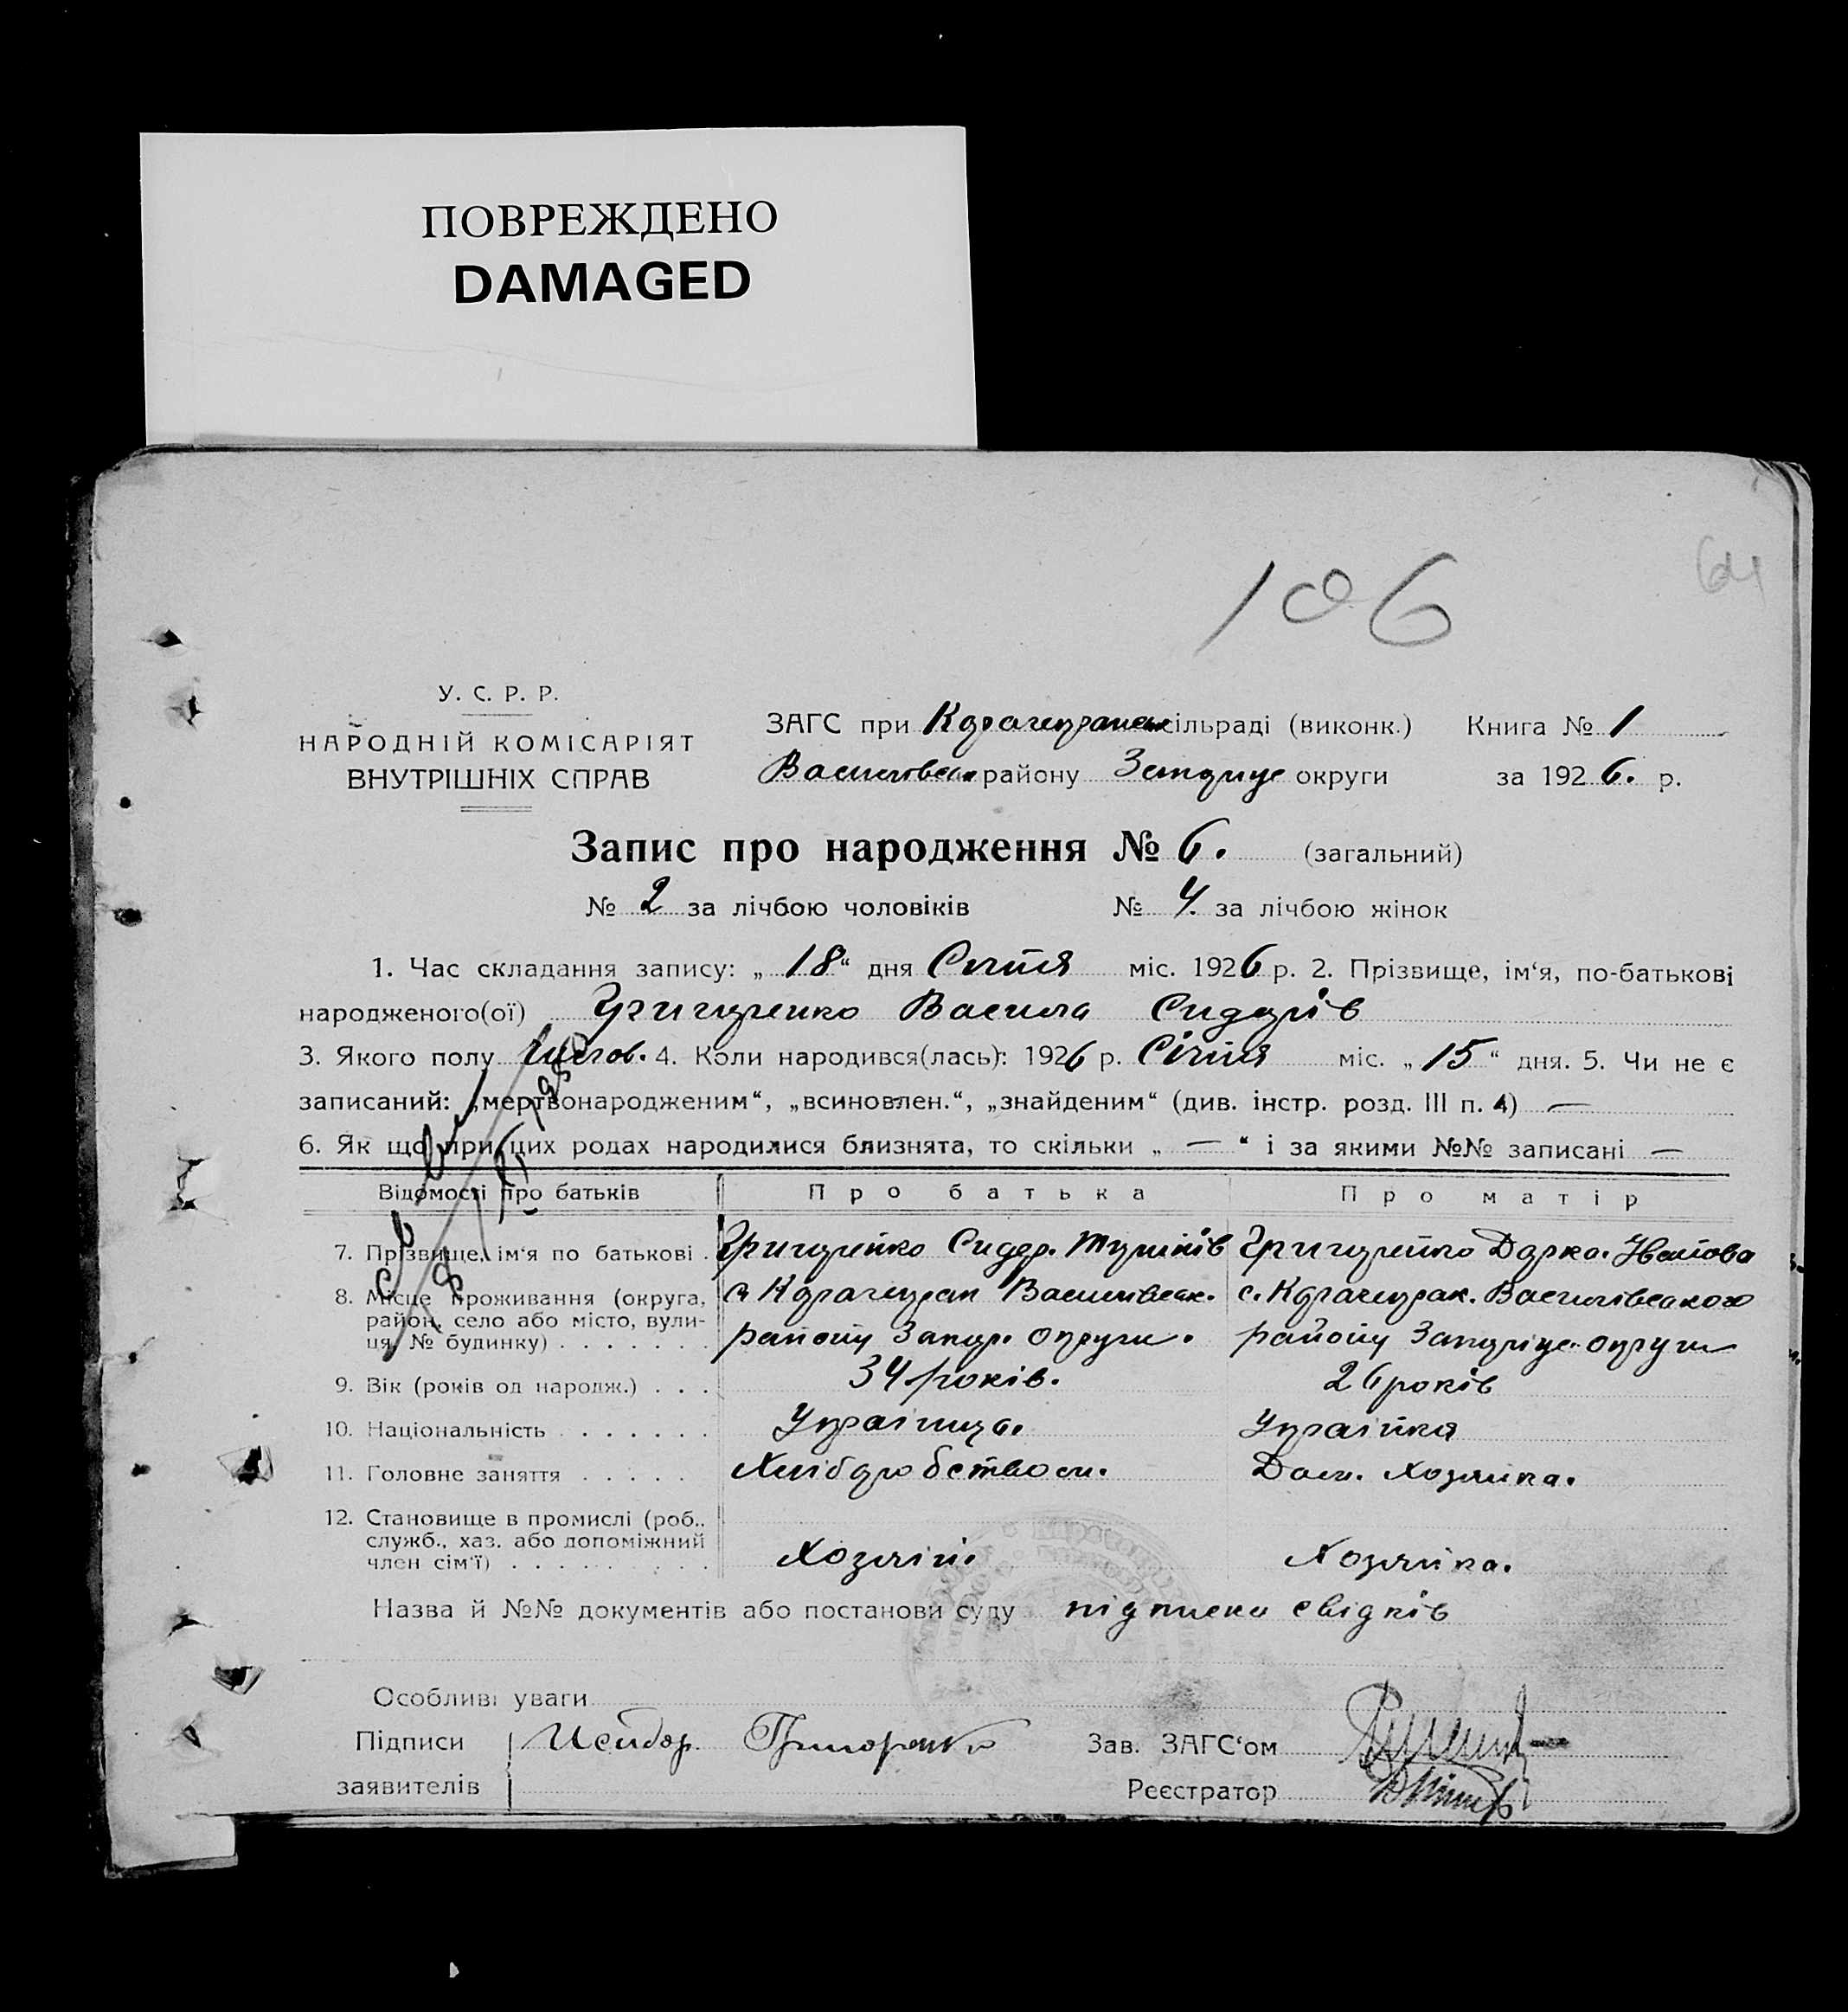 ПОВРЕЖДЕНО
DAMAGED
106
64
У. С. Р. Р.
НАРОДНІЙ КОМІСАРІЯТ
ВНУТРІШНІХ СПРАВ
ЗАГС при сільраді (виконк.) Книга № 1
Василівськ району округи за 1926. р.
Запис про народження № 6. (загальний)
№ 2 за лічбою чоловіків № 4. за лічбою жінок
1. Час складання запису: „ 18 “ дня Січня міс. 1926 р. 2. Прізвище, ім‘я, по-батькові
народженого(ої) Григоренко Василь Сидорів
3. Якого полу 4. Коли народився(лась): 1926 р. Січня міс. „ 15 “ дня. 5. Чи не є
записаний: „мертвонародженим“, „всиновлен.“, „знайденим“ (див. інстр. розд. III п. 4) —
6. Як що при цих родах народилися близнята, то скільки „ — “ і за якими №№ записані —
Відомості про батьків Про батька Про матір
7. Прізвище, ім‘я по батькові . Григоренко Сидор. Григоренко Дарка. Іванова
8. Місце проживання (округа, район, село або місто, вулиця, № будинку) . . . . . . .
с. Карачекрак Василівськ. с. Карачекрак. Василівського
району Запор. округи. району Запоріце. округи
9. Вік (років од народж.) . . . 34 років. 26 років
10. Національність . . . . . . . Українець. Українка
11. Головне заняття . . . . . Хліборобством. Дом. Хозяйка.
12. Становище в промислі (роб., служб., хаз. або допоміжний член сім‘ї) . . . . . . . . . Хозяїн. Хозяйка.
Назва й №№ документів або постанови суду підписки свідків
Особливі уваги
Підписи Исидор Григоренко Зав. ЗАГС‘ом
заявителів Реєстратор